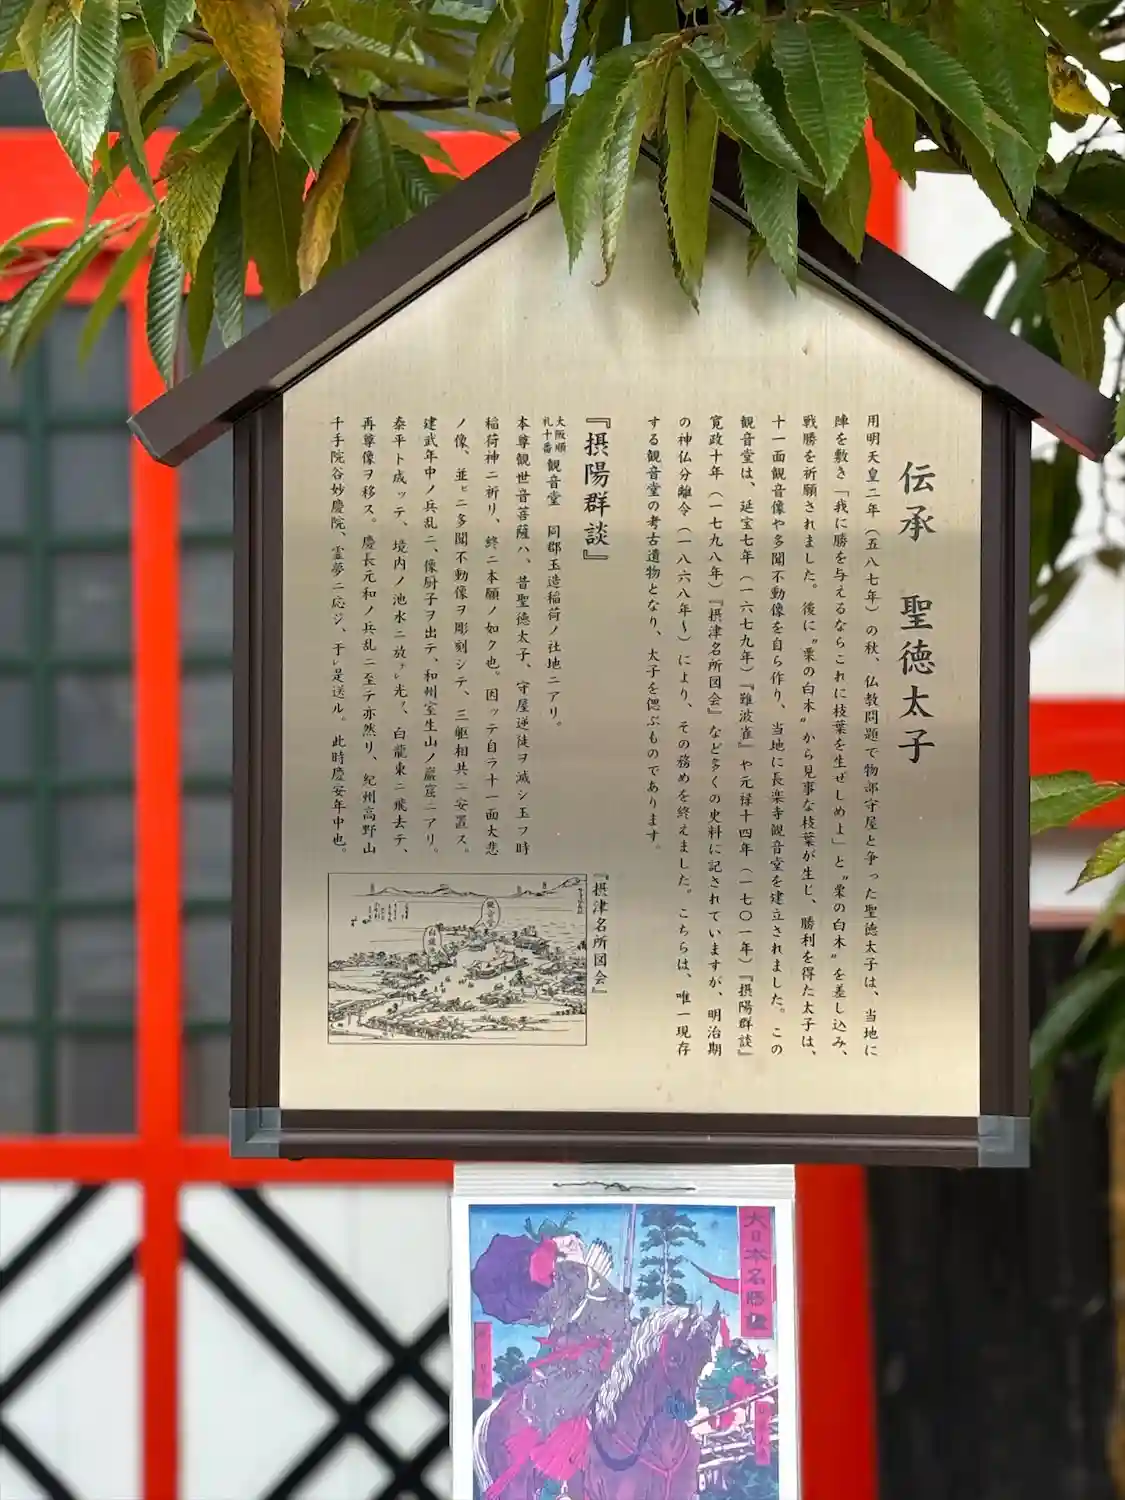 伝承 聖徳太子
用明天皇二年（五八七年）の秋、仏教問題で物部守屋と争った聖徳太子は、当地に
陣を敷き「我に勝を与えるならこれに枝葉を生ぜしめよ」と〝栗の白木〟を差し込み、
戦勝を祈願されました。後に〝栗の白木〟から見事な枝葉が生じ、勝利を得た太子は、
十一面観音像や多聞不動像を自ら作り、当地に長楽寺観音堂を建立されました。この
観音堂は、延宝七年（一六七九年）『難波雀』や元禄十四年（一七〇一年）『摂陽群談』
寛政十年（一七九八年）『摂津名所図会』など多くの史料に記されていますが、明治期
の神仏分離令（一八六八年〜）により、その務めを終えました。こちらは、唯一現存
する観音堂の考古遺物となり、太子を偲ぶものであります。
『摂陽群談』
大阪順礼十番 観音堂 同郡玉造稲荷ノ社地ニアリ。
本尊観世音菩薩ハ、昔聖徳太子、守屋逆徒ヲ滅シ玉フ時
稲荷神ニ祈リ、終ニ本願ノ如ク也。因ッテ自ラ十一面大悲
ノ像、並ヒニ多聞不動像ヲ彫刻シテ、三躯相共ニ安置ス。
建武年中ノ兵乱ニ、像厨子ヲ出テ、和州室生山ノ巌窟ニアリ。
泰平ト成ッテ、境内ノ池水ニ放ッレ光ヲ、白龍東ニ飛去テ、
再尊像ヲ移ス。慶長元和ノ兵乱ニ至テ亦然リ、紀州高野山
千手院谷妙慶院、霊夢ニ応ジ、于レ是送ル。此時慶安年中也。
『摂津名所図会』
観音堂
白龍池
大日本名勝